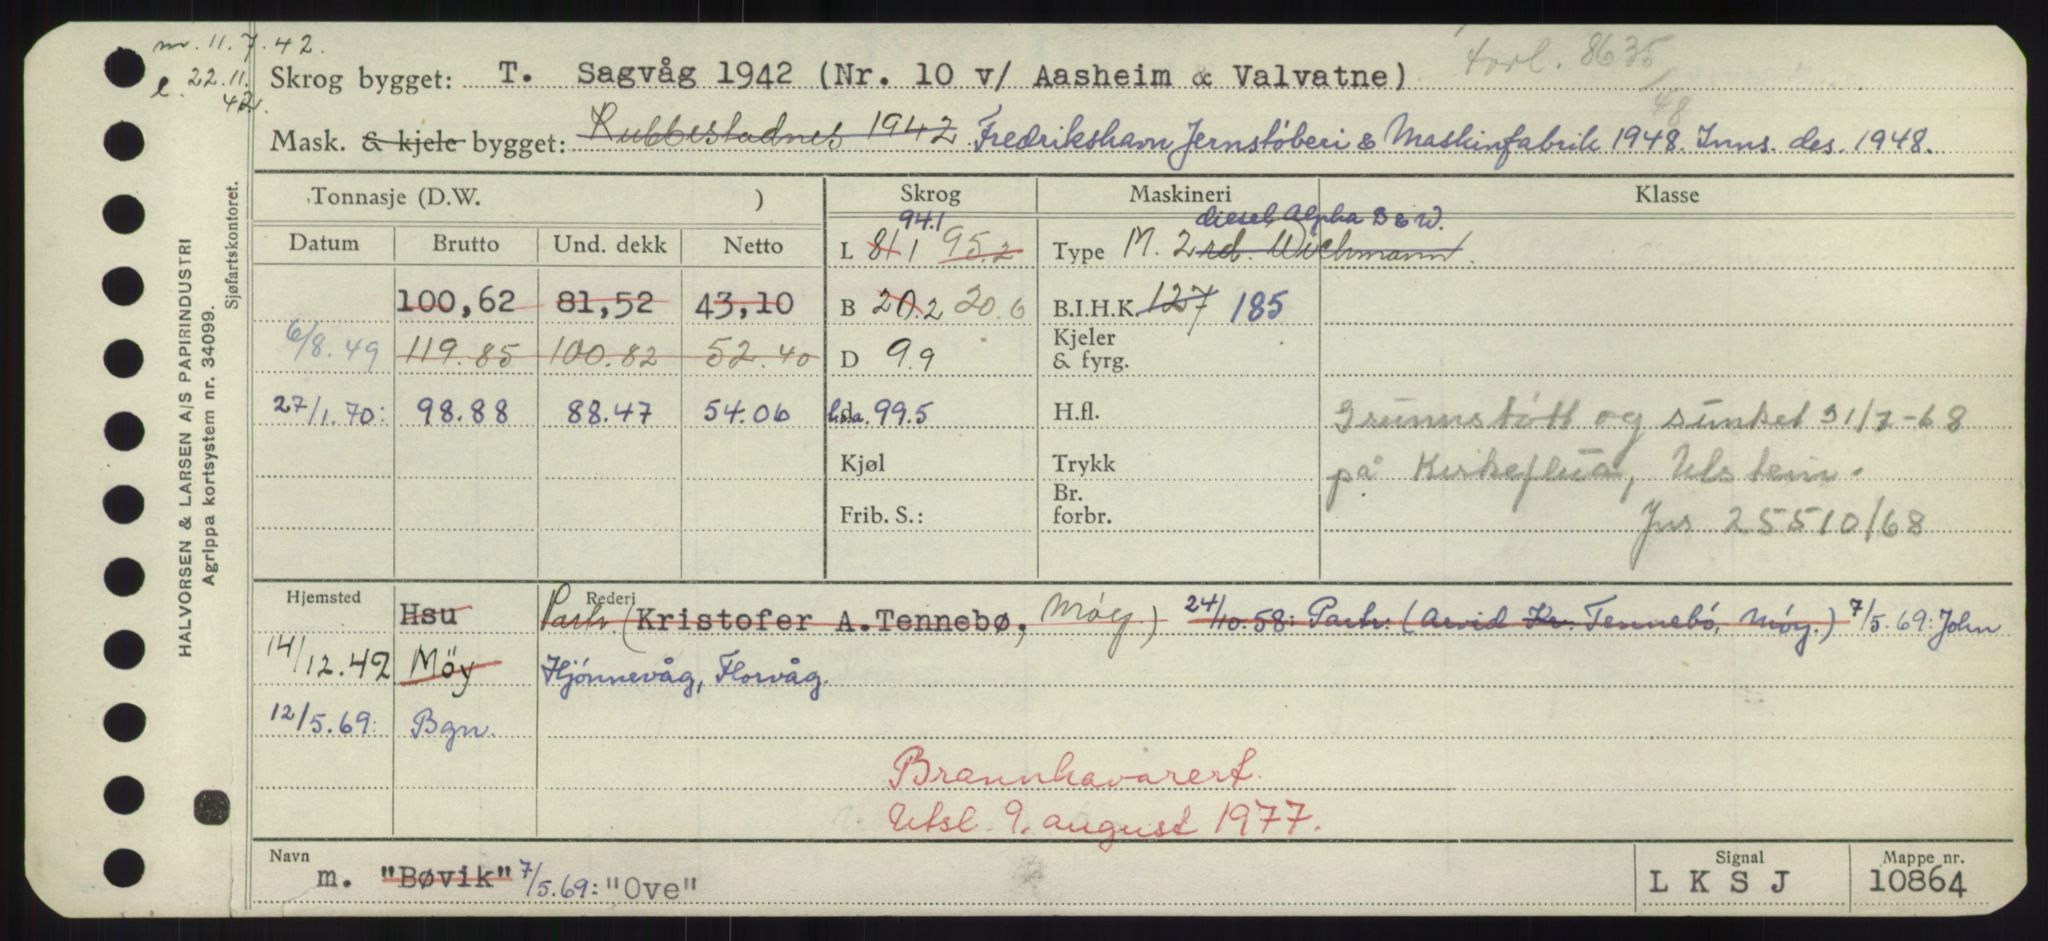 nr. 11.7.42.
l. 22.11.42.
Skrog bygget: T. Sagvåg 1942 (Nr. 10 v/ Aasheim & Valvatne)
forl. 8635/48
Mask. & kjele bygget: Rubbestadnes 1942 Fredrikshavn Jernstøberi & Maskinfabrik 1948. Inns. des. 1948.
Tonnasje (D.W. ) Skrog Maskineri Klasse
Datum Brutto Und. dekk Netto
94.1 diesel Alpha B & W.
L 81.1 95.2 Type M. 2 rd. Wichmann.
100,62 81,52 43,10 B 20.2 20.6 B.I.H.K. 127 185
6/8.49 119.85 100.82 52.40 D 9.9 Kjeler & fyrg.
27/1.70: 98.88 88.47 54.06 l.o.a. 99.5 H.fl. Grunnstøtt og sunket 31/7-68
Kjøl Trykk på Kirkeflua, Ulstein.
Frib. S.: Br. forbr. Jns 25510/68
Hjemsted Rederi
Hsu Partr. (Kristofer A.Tennebø, Møy.) 24/10.58: Partr. (Arvid Kr. Tennebö, Möy.) 7/5.69: John
14/12.42 Möy Hjønnevåg, Florvåg.
12/5.69: Bgn.
Brannhavarert.
Utsl. 9. august 1977.
Navn Signal Mappe nr.
m. "Bøvik" 7/5.69: "Ove" L K S J 10864
HALVORSEN & LARSEN A/S PAPIRINDUSTRI
Agrippa kortsystem nr. 34099.
Sjøfartskontoret.